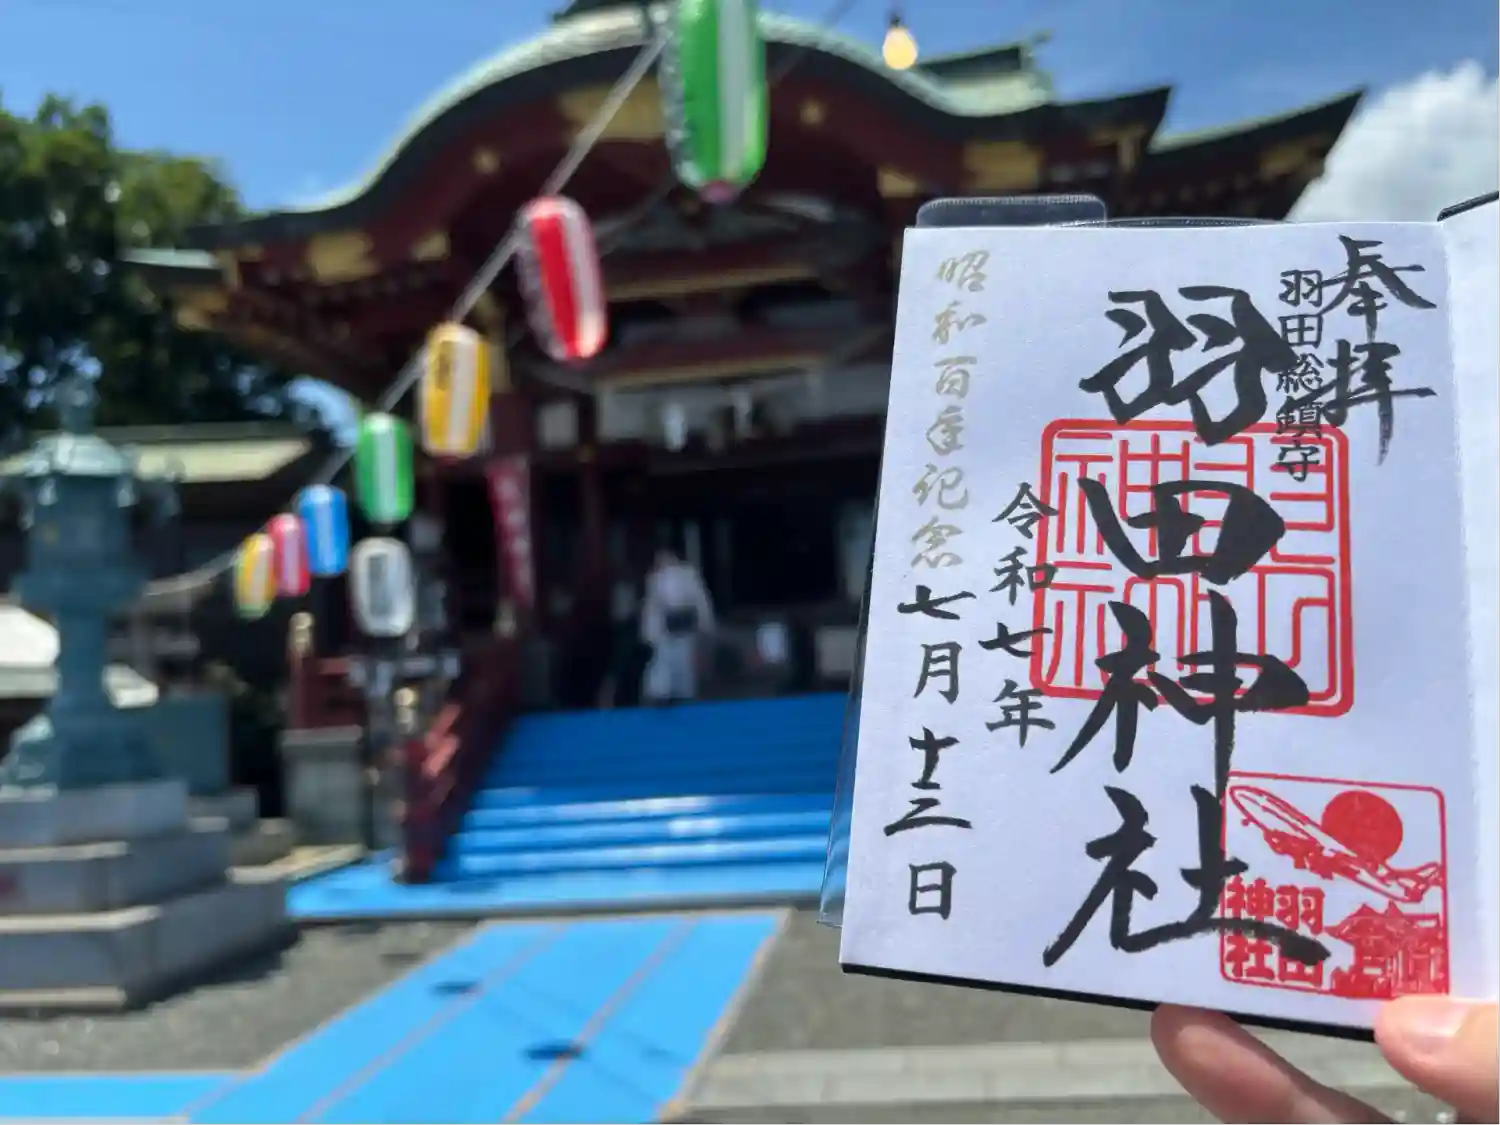 奉拝
羽田総鎮守
羽田神社
令和七年
昭和百年記念
七月十三日
羽田
神社
羽田
神社